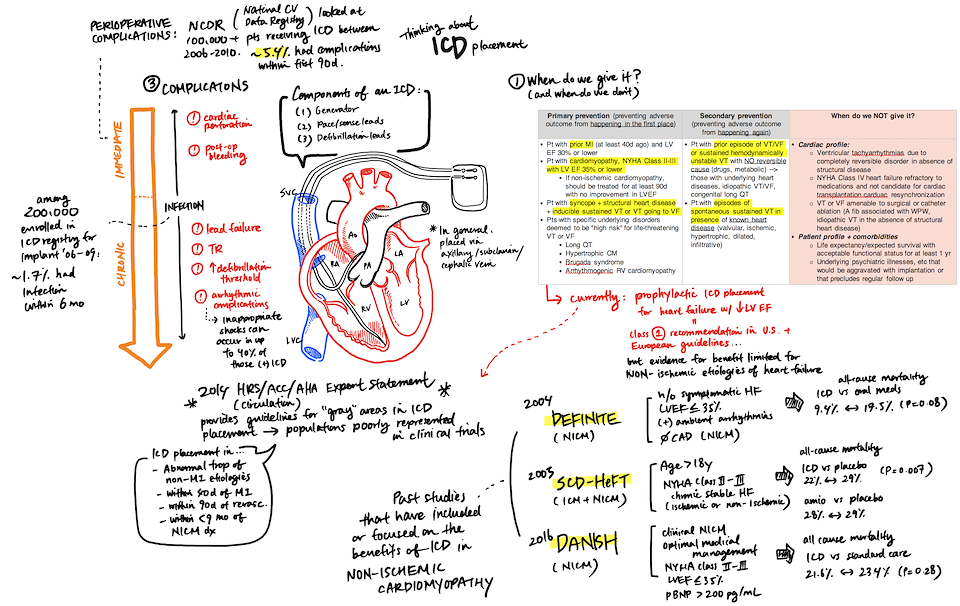 Thinking about
ICD placement
PERIOPERATIVE
COMPLICATIONS:
NCDR (National CV
Data Registry) looked at
100,000+ pts receiving ICD between
2006-2010. ~5.4% had complications
within first 90d.
③ COMPLICATIONS
IMMEDIATE
CHRONIC
! cardiac
perforation
! post-op
bleeding
INFECTION
! lead failure
! TR
! ↑ defibrillation
threshold
! arrhythmic
complications
↳ Inappropriate
shocks can
occur in up
to 40% of
those (+) ICD
among
200,000
enrolled in
ICD registry for
implant '06-09:
~1.7% had
Infection
within 6 mo
Components of an ICD:
(1) Generator
(2) Pace/sense leads
(3) Defibrillation leads
SVC
Ao
RA
PA
LA
RV
LV
IVC
* In general,
placed via
axillary/subclavian/
cephalic vein
① When do we give it?
(and when do we don't)
Primary prevention (preventing adverse
outcome from happening in the first place)
• Pt with prior MI (at least 40d ago) and LV
EF 30% or lower
• Pt with cardiomyopathy, NYHA Class II-III
with LV EF 35% or lower
• If non-ischemic cardiomyopathy,
should be treated for at least 90d
with no improvement in LVEF
• Pt with syncope + structural heart disease
+ inducible sustained VT or VT going to VF
• Pts with specific underlying disorders
deemed to be "high risk" for life-threatening
VT or VF
• Long QT
• Hypertrophic CM
• Brugada syndrome
• Arrhythmogenic RV cardiomyopathy
Secondary prevention
(preventing adverse outcome
from happening again)
• Pt with prior episode of VT/VF
or sustained hemodynamically
unstable VT with NO reversible
cause (drugs, metabolic) –>
those with underlying heart
diseases, idiopathic VT/VF,
congenital long QT
• Pt with episodes of
spontaneous sustained VT in
presence of known heart
disease (valvular, ischemic,
hypertrophic, dilated,
infiltrative)
When do we NOT give it?
• Cardiac profile:
○ Ventricular tachyarrhythmias due to
completely reversible disorder in absence of
structural disease
○ NYHA Class IV heart failure refractory to
medications and not candidate for cardiac
transplantation, cardiac resynchronization
○ VT or VF amenable to surgical or catheter
ablation (A fib associated with WPW,
idiopathic VT in the absence of structural
heart disease)
• Patient profile + comorbidities
○ Life expectancy/expected survival with
acceptable functional status for at least 1 yr
○ Underlying psychiatric illnesses, etc that
would be aggravated with implantation or
that precludes regular follow up
currently: prophylactic ICD placement
for heart failure w/ ↓LVEF
=
class ① recommendation in U.S. +
European guidelines...
but evidence for benefit limited for
NON-ischemic etiologies of heart failure
* 2014 HRS/ACC/AHA Expert Statement *
(Circulation)
provides guidelines for "gray" areas in ICD
placement → populations poorly represented
in clinical trials
ICD placement in...
- Abnormal trop of
non-MI etiologies
- within 40d of MI
- within 90d of revasc.
- within <9 mo of
NICM dx
Past studies
that have included
or focused on the
benefits of ICD in
NON-ISCHEMIC
CARDIOMYOPATHY
2004
DEFINITE
(NICM)
h/o symptomatic HF
LVEF ≤ 35%
(+) ambient arrhythmias
Ø CAD (NICM)
all-cause mortality
ICD vs oral meds
9.4% ↔ 17.5% (P=0.08)
2005
SCD-HeFT
(ICM + NICM)
Age > 18y
NYHA class II-III
chronic stable HF
(ischemic or non-ischemic)
all-cause mortality
ICD vs placebo (P=0.007)
22% ↔ 29%
amio vs placebo
28% ↔ 29%
2016
DANISH
(NICM)
clinical NICM
optimal medical
management
NYHA class II-III
LVEF ≤ 35%
pBNP > 200 pg/mL
all cause mortality
ICD vs standard care
21.6% ↔ 23.4% (P=0.28)